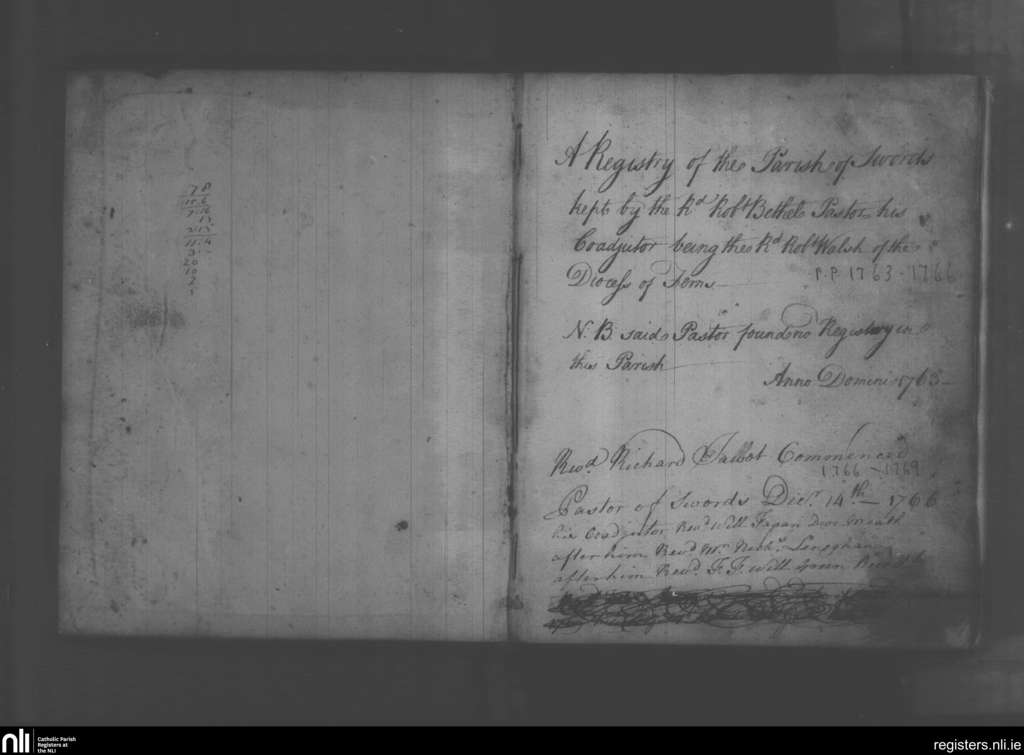 7 8
11.6
7.16
13
2.13
11.4
3.
20
10
2
A Registry of the Parish of Swords
kept by the Rd Robt Bethel Pastor, his
Coadjutor being the Rd Robt Walsh of the
Diocess of Ferns
P.P. 1763-1766
N.B. said Pastor found no Registry in
this Parish
Anno Domini 1763
Revd Richard Talbot Commenced
1766-1769
Pastor of Swords Decr 14th 1766
his Coadjutor Revd Will Fagan Meath
after him Revd Mr Nichs
after him Revd F. F. Will
nli
Catholic Parish
Registers at
the NLI
registers.nli.ie